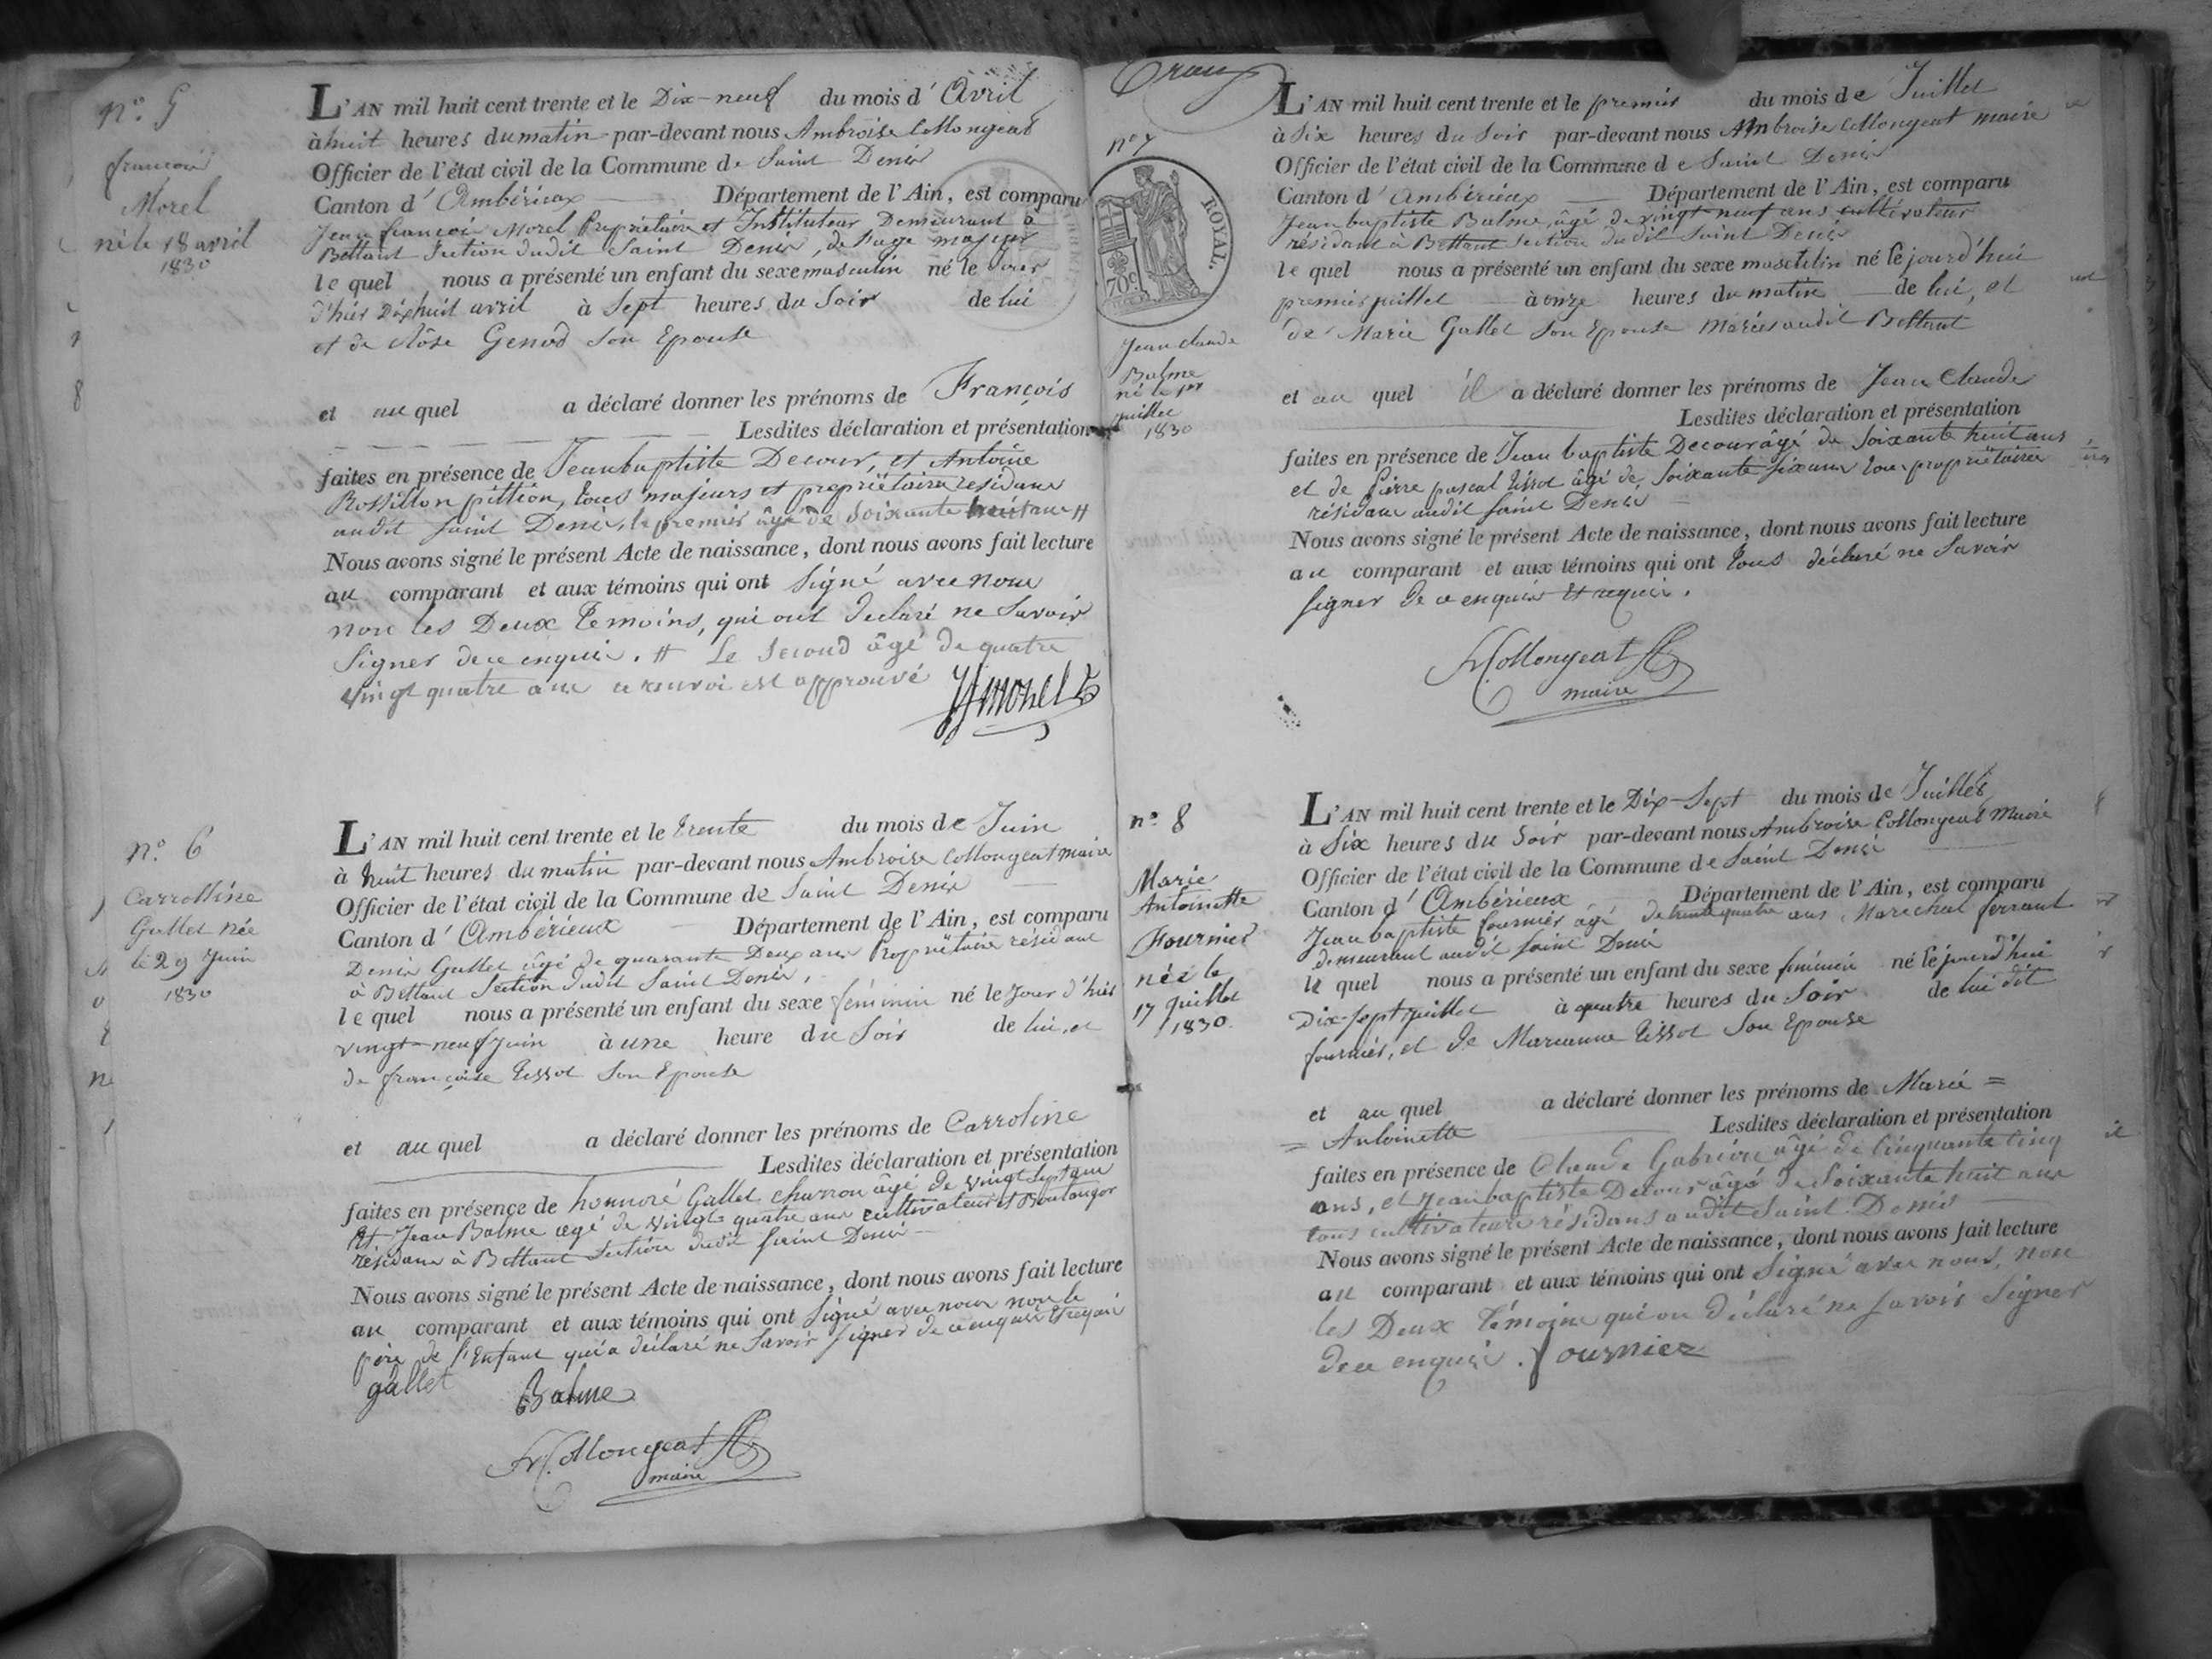 n.° 5
françois
Morel
né le 18 avril
1830
L'AN mil huit cent trente et le Dix-neuf du mois d'Avril
à huit heures du matin par-devant nous Ambroise Collongeat
Officier de l'état civil de la Commune de Saint Denis
Canton d'Ambérieux Département de l'Ain, est comparu
Jean françois Morel Propriétaire et Instituteur Demeurant à
Bettant Section dudit Saint Denis, de l'age majeur
le quel nous a présenté un enfant du sexe masculin né le Jour
d'hier Dixhuit avril à Sept heures du Soir de lui
et de Rose Genod Son Epouse
et au quel a déclaré donner les prénoms de François
Lesdites déclaration et présentation
faites en présence de Jeanbaptiste Decour, et Antoine
Rossillon pittion, tous majeurs et propriétaires residans
audit Saint Denis, le premier âgé de Soixante huit ans #
Nous avons signé le présent Acte de naissance, dont nous avons fait lecture
au comparant et aux témoins qui ont Signé avec nous
non les Deux Temoins, qui ont declaré ne Savoir
Signer de ce enquis. # Le Second âgé de quatre
vingt quatre ans ce renvoi est approuvé
JfMorel
n.° 6
Carrolline
Gallet née
le 29 Juin
1830
L'AN mil huit cent trente et le trente du mois de Juin
à huit heures du matin par-devant nous Ambroise Collongeat maire
Officier de l'état civil de la Commune de Saint Denis
Canton d'Ambérieux Département de l'Ain, est comparu
Denis Gallet âgé de quarante Deux ans Propriétaire résidant
à Bettant Section dudit Saint Denis,
le quel nous a présenté un enfant du sexe féminin né le Jour d'hier
vingt-neuf Juin à une heure du Soir de lui, et
de françoise Tissot Son Epouse
et au quel a déclaré donner les prénoms de Carroline
Lesdites déclaration et présentation
faites en présence de honnoré Gallet charron âgé de vingt Sept ans
Et Jean Balme agé de vingt quatre ans cultivateur et Boulanger
résidans à Bettant Section dudit Saint Denis
Nous avons signé le présent Acte de naissance, dont nous avons fait lecture
au comparant et aux témoins qui ont Signé avec nous non le
père de l'Enfant qui a déclaré ne Savoir Signer de ce enquis et requis
gallet Balme
Collongeat
maire
n.° 7
ROYAL.
70c.
Jean claude
Balme
né le 1er
juillet
1830
L'AN mil huit cent trente et le premier du mois de Juillet
à Six heures du Soir par-devant nous Ambroise Collongeat maire
Officier de l'état civil de la Commune de Saint Denis
Canton d'Ambérieux Département de l'Ain, est comparu
Jeanbaptiste Balme, âgé de vingt neuf ans cultivateur
résidant à Bettant Section dudit Saint Denis
le quel nous a présenté un enfant du sexe masculin né le jourd'hui
premier juillet à onze heures du matin de lui, et
de Marie Gallet Son Epouse Mariés audit Bettant
et au quel il a déclaré donner les prénoms de Jean Claude
Lesdites déclaration et présentation
faites en présence de Jean baptiste Decour âgé de Soixante huit ans
et de Pierre pascal Tissot âgé de Soixante six ans tous propriétaires
résidans audit Saint Denis
Nous avons signé le présent Acte de naissance, dont nous avons fait lecture
au comparant et aux témoins qui ont tous déclaré ne Savoir
signer de ce enquis et requis.
Collongeat
maire
n.° 8
Marie
Antoinette
Fournier
née le
17 juillet
1830.
L'AN mil huit cent trente et le Dix-Sept du mois de Juillet
à Six heures du Soir par-devant nous Ambroise Collongeat Maire
Officier de l'état civil de la Commune de Saint Denis
Canton d'Ambérieux Département de l'Ain, est comparu
Jeanbaptiste fournier âgé de trente quatre ans Marechal ferrant
demeurant audit Saint Denis
le quel nous a présenté un enfant du sexe féminin né le jourd'hui
Dix-Sept juillet à quatre heures du Soir de lui dit
fournier, et de Marianne Tissot Son Epouse
et au quel a déclaré donner les prénoms de Marie =
= Antoinette Lesdites déclaration et présentation
faites en présence de Claude Gabrion âgé de Cinquante Cinq
ans, et Jeanbaptiste Decour âgé de Soixante huit ans
tous cultivateurs résidans audit Saint Denis
Nous avons signé le présent Acte de naissance, dont nous avons fait lecture
au comparant et aux témoins qui ont Signé avec nous, non
les Deux témoins qui on déclaré ne Savoir Signer
de ce enquis. fournier